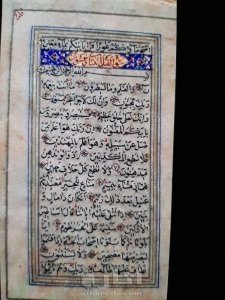 اصبح ماؤكم غورا فمن ياتيكم بماء معين
بسم الله الرحمن الرحيم
ن والقلم وما يسطرون ما انت بنعمة
ربك بمجنون وان لك لاجرا غير ممنون
وانك لعلى خلق عظيم فستبصر ويبصرون
بايكم المفتون ان ربك هو اعلم بمن
ضل عن سبيله وهو اعلم بالمهتدين
فلا تطع المكذبين ودوا لو تدهن
فيدهنون ولا تطع كل حلاف مهين
هماز مشاء بنميم مناع للخير معتد اثيم
عتل بعد ذلك زنيم ان كان ذا مال و
بنين اذا تتلى عليه اياتنا قال اساطير
الاولين سنسمه على الخرطوم انا
بلوناهم كما بلونا اصحاب الجنة اذ اقسموا
ليصرمنها مصبحين ولا يستثنون
فطاف عليها طائف من ربك وهم